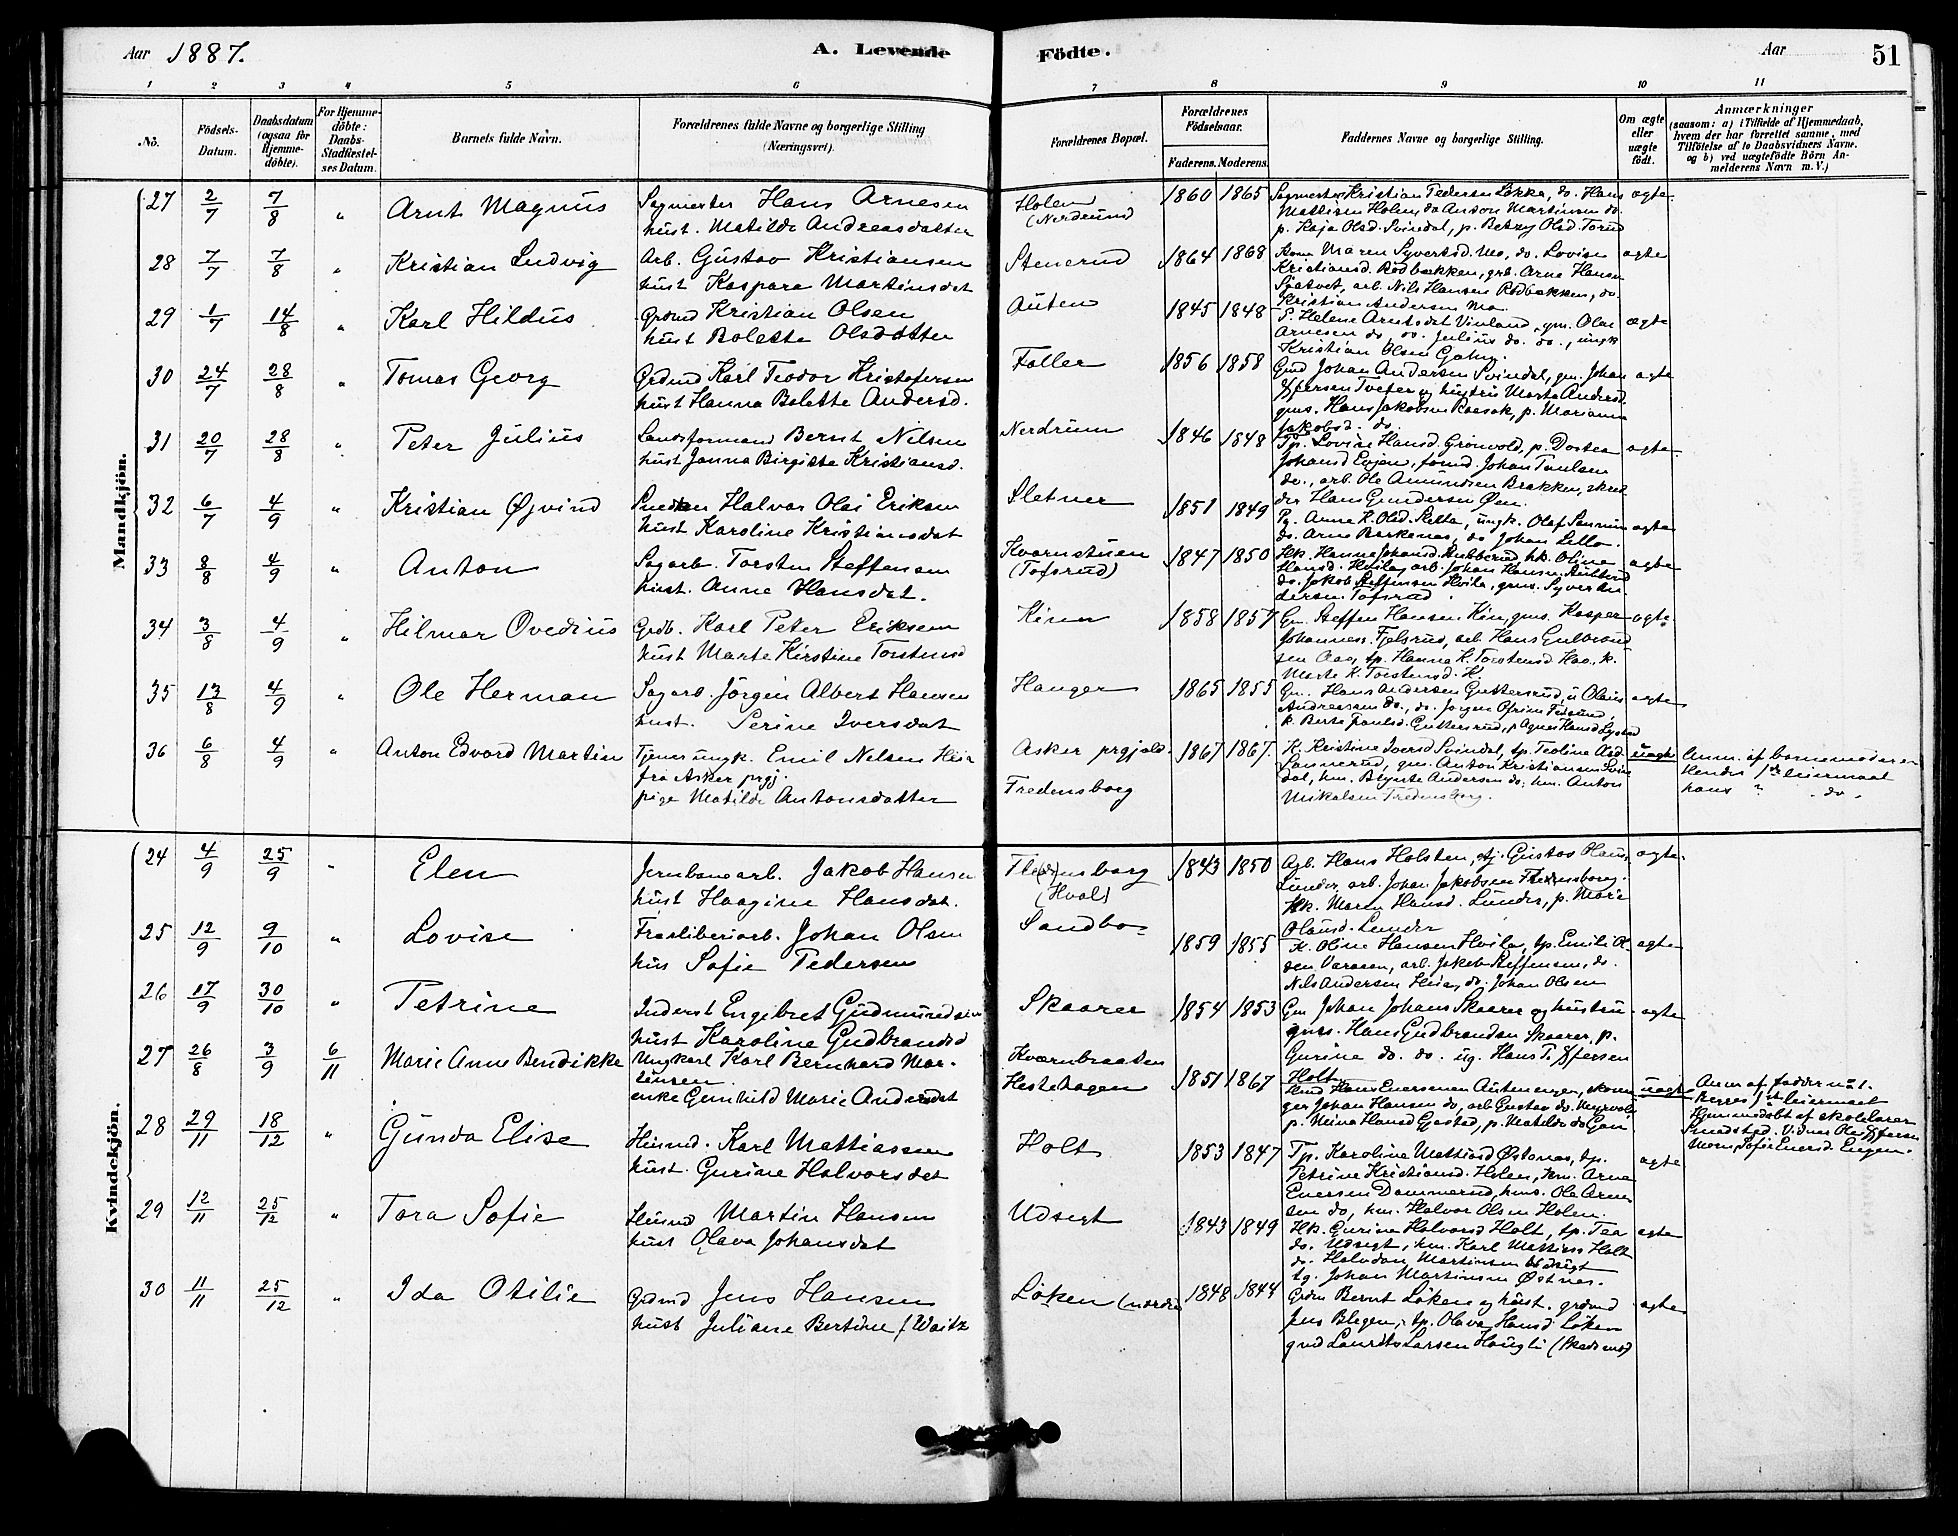 Aar 1887.
A. Levende Födte.
Aar
51
1 2 3 4 5 6 7 8 9 10 11
No.
Födsels-Datum.
Daabsdatum (ogsaa for Hjemme-döbte).
For Hjemme-döbte: Daabs-Stadfæstel-ses Datum.
Barnets fulde Navn.
Forældrenes fulde Navne og borgerlige Stilling (Næringsvei).
Forældrenes Bopæl.
Forældrenes Födselsaar.
Faderens. Moderens.
Faddernes Navne og borgerlige Stilling.
Om ægte eller uægte födt.
Anmærkninger
(saasom: a) i Tilfælde af Hjemmedaab, hvem der har forrettet samme, med Tilföielse af to Daabsvidners Navne. og b) ved uægtefödte Börn An-melderens Navn m.V.)
Mandkjön.
27 2/7 7/8 " Arnt Magnus
Sagmester Hans Arnesen
hust. Matilde Andreasdatter
Holen (Nerdrund 1860 1865
Sagmester Kristian Pedersen Løkke, do. Hans
Mattisen Holen, do Anton Martinsen do.
p. Kaja Olsd. Svindal, p. Betzy Olsd. Torud
ægte
28 7/7 7/8 " Kristian Ludvig
Arb. Gustav Kristiansen
hust Kaspara Martinsdat
Stenerud 1864 1868
Kone Maren Syvertsd. Mo, do. Lovise
Kristiansd. Rødbækken, grb. Arne Hansen
Spatvet, arb. Nils Hansen Rødbækken, do.
Kristian Andersen Mo.
ægte
29 1/7 14/8 " Karl Hildus
Grdmd Kristian Olsen
hust Bolette Olsdatter
Auten 1845 1848
P. Helene Arntsdat Vinland, gm. Olai
Arnesen do do. Julius do. do., ungk
Kristian Olsen
ægte
30 24/7 28/8 " Tomas Georg
Grdmd Karl Teodor Kristofersen
hust Hanna Bolette Andersd.
Faller 1856 1858
Gmd Johan Andersen Svindal, gm. Johan
Effersen Tveter og hustru Marte Andersd
gms. Hans Jakobsen Raasok, p. Mariann
Jakobsd. do.
ægte
31 20/7 28/8 " Peter Julius
Landsformand Bernt Nilsen
hust Janna Birgitte Kristiansd.
Nerdrum 1846 1848
Tp. Lovise Hansd. Grönvold, p. Dortea
Johansd Engen, formd. Johan Paulsen
do., arb. Ole Amundsen Brækken, skred
der Hans Gundersen Øen.
ægte
32 6/7 4/9 " Kristian Øjvind
Halvor Olai Eriksen
hust Karoline Kristiansdat
Sletner 1851 1849
Pg. Anne K. Olsd. Sletta, ungk. Olaf
do. Arne Barkenæs, do Johan Lillo.
ægte
33 8/8 4/9 " Anton
Sagarb. Torsten Steffensen
hust. Anne Hansdat.
Kvernstuen (Tofsrud) 1847 1850
Hk. Hanna Johansd. Rubberud hk. Oline
Hansd. Hvila, arb. Johan Hansen
do. Jakob Steffensen Hvila, gms. Syver
dersen Tofsrud
ægte
34 3/8 4/9 " Hilmar Ovedius
Grdb. Karl Peter Eriksen
hust Marte Kirstine Torstensd
Kinn 1858 1857
Gm. Steffen Hansen Kin, gms. Kasper
Johannes. Fjelsrud, arb. Hans Gulbrand
sen Aas, tp. Hanna K. Torstensd Hao, k.
Marte K. Torstensd. K.
ægte
35 13/8 4/9 " Ole Herman
Sagarb. Jörgen Albert Hansen
hust. Perine Iversdat
Hanger 1865 1855
Gm. Hans Andersen Guttersrud, u Olaus
Andreassen do., do. Jörgen
k. Berte Paulsd. Guttersrud, p Agnes Hansd Lystad
ægte
36 6/8 4/9 " Anton Edvard Martin
Tjener ungk. Emil Nilsen Heir
fra Asker prgj.
pige Matilde Antonsdatter
Asker prgjeld. Fredensborg 1867 1867.
K. Kristine Iversd Svindal, tp. Teoline Olsd.
Sannerud, gm. Anton Kristiansen Svin
dal, km. Brynte Andersen do, km. Anton
Mikalsen Fredensborg.
uægte
Anm. af barnemoderen
Hendes 1ste leiermaal
hans " do.
Kvindekjön.
24 4/9 25/9 " Elen
Jernbanearb. Jakob Hansen
hust Haagine Hansdat.
Fredensborg (Hval) 1843 1850
Agb. Hans Holsten, stj. Gustav Olaus.
Lunder, arb. Johan Jakobsen Fredensborg.
Hk. Maren Hansd. Lunder, p. Marie
Olausd. Lunder
ægte
25 12/9 9/10 " Lovise
Træsliberiarb. Johan Olsen
hus Sofie Pedersen
Sandbo 1859 1855
K. Oline Hansen Hvila, tp. Emilie Ol
sen Varaaen, arb. Jakob Steffensen, do.
Nils Andersen Heia, do. Johan Olsen
ægte
26 17/9 30/10 " Petrine
Inderst Engebret Gudmundsen
hust Karoline Gudbrandsd
Skaarer 1854 1853
Gm Johan Johans Skaarer og hustru
gms. Hans Gudbrandsen Skaarer, p.
Gurine do. do. ug. Hans P. Effersen
Holt
ægte
27 26/8 3/9 6/11 Marie Anne Bendikke
Ungkarl Karl Bernhard Mar-
tinsen
enke Gunhild Marie Andersdat
Kværnbraaten Hestehagen 1851 1867
Husmd Hans Enersen Autenengen, skoma
ger Johan Hansen do, arb Gustav do. Myrvold
p. Mina Hansd Gaasted, p. Matilde do Gan
uægte
Anm af fadder no 1.
begges 1ste leiermaal
Hjemmedøbt af skolelærer
Smedstad. Vidner Ole Effersen
Moen, Sofie Enersd. Engen.
28 29/11 18/12 " Gunda Elise
Husmd. Karl Mattiassen
hust. Gurine Halvorsdat
Holt 1853 1847
Tp. Karoline Mattiasd Østenes, tp.
Petrine Kristiansd. Holen, km. Arne
Enersen Dammerud, kms. Ole Arne
sen do, km. Halvor Olsen Holen.
ægte
29 12/11 25/12 " Tora Sofie
Husmd Martin Hansen
hust Olava Johansdat
Udsigt 1843 1849
Hk. Gurine Halvorsd Holt, tp. Tea
do. Udsigt, km. Karl Mattiass Holt
do. Halvdan Martinsen Udsigt
tg. Johan Martinsen Østnes.
ægte
30 11/11 25/12 " Ida Otilie
Grdmd Jens Hansen
hust Juliane Bertine f. Waitz
Løken (nordre 1848 1844
Grdm Bernt Løken og hust. grdmd
Jens Blegen, tp. Olava Hansd Løken
gmd Laurits Larsen Haugli (Skedsmo)
ægte